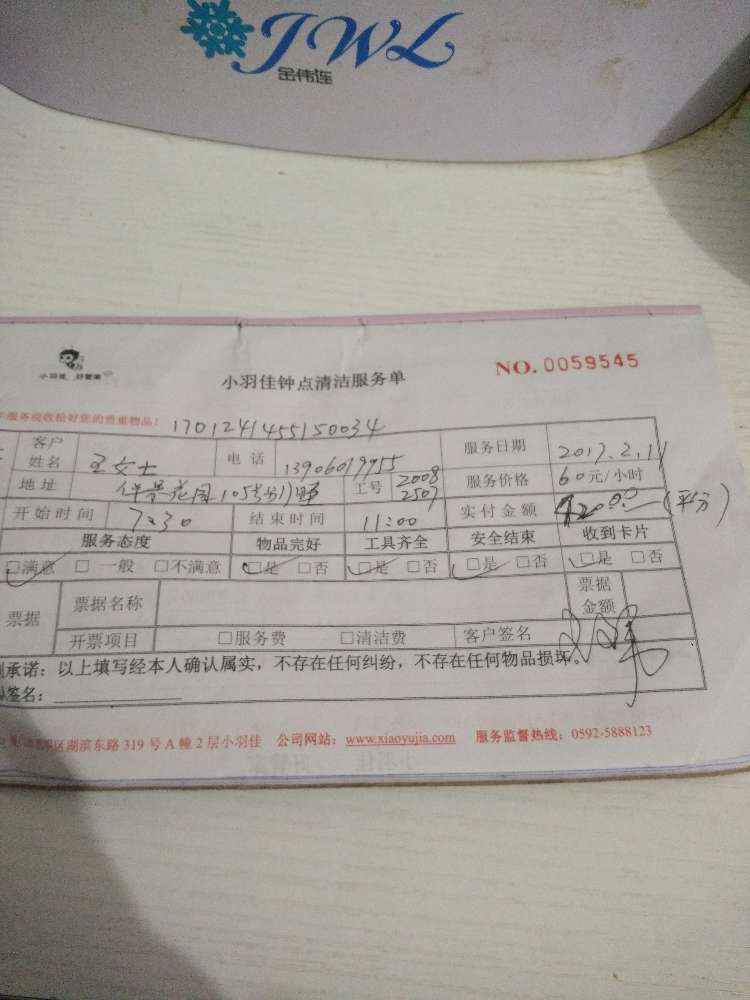 JWL
金伟连
小羽佳 好管家
小羽佳钟点清洁服务单
NO. 0059545
服务税收拾好您的贵重物品!
1701241455150034
客户姓名 王女士 电话 13906019955 服务日期 2017.2.11
地址 105 工号 2008 2507 服务价格 60元/小时
开始时间 7:30 结束时间 11:00 实付金额 (平分)
服务态度 物品完好 工具齐全 安全结束 收到卡片
□满意 □一般 □不满意 □是 □否 □是 □否 □是 □否 □是 □否
票据 票据名称 票据金额
开票项目 □服务费 □清洁费 客户签名
承诺:以上填写经本人确认属实,不存在任何纠纷,不存在任何物品损坏。
签名:
区湖滨东路 319 号 A 幢 2 层小羽佳 公司网站:www.xiaoyujia.com 服务监督热线:0592-5888123